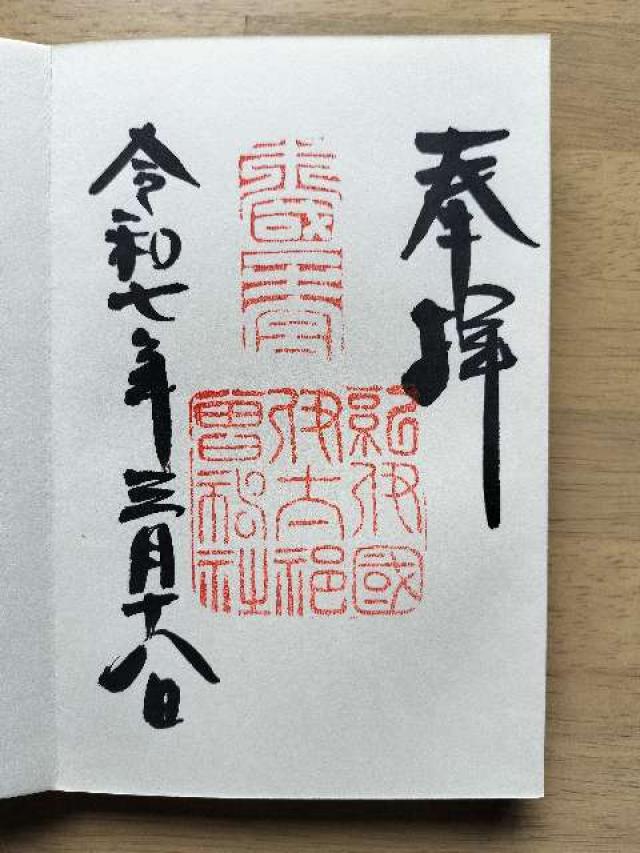 奉拝
紀伊國
伊太祁
曽神社
令和七年三月十八日